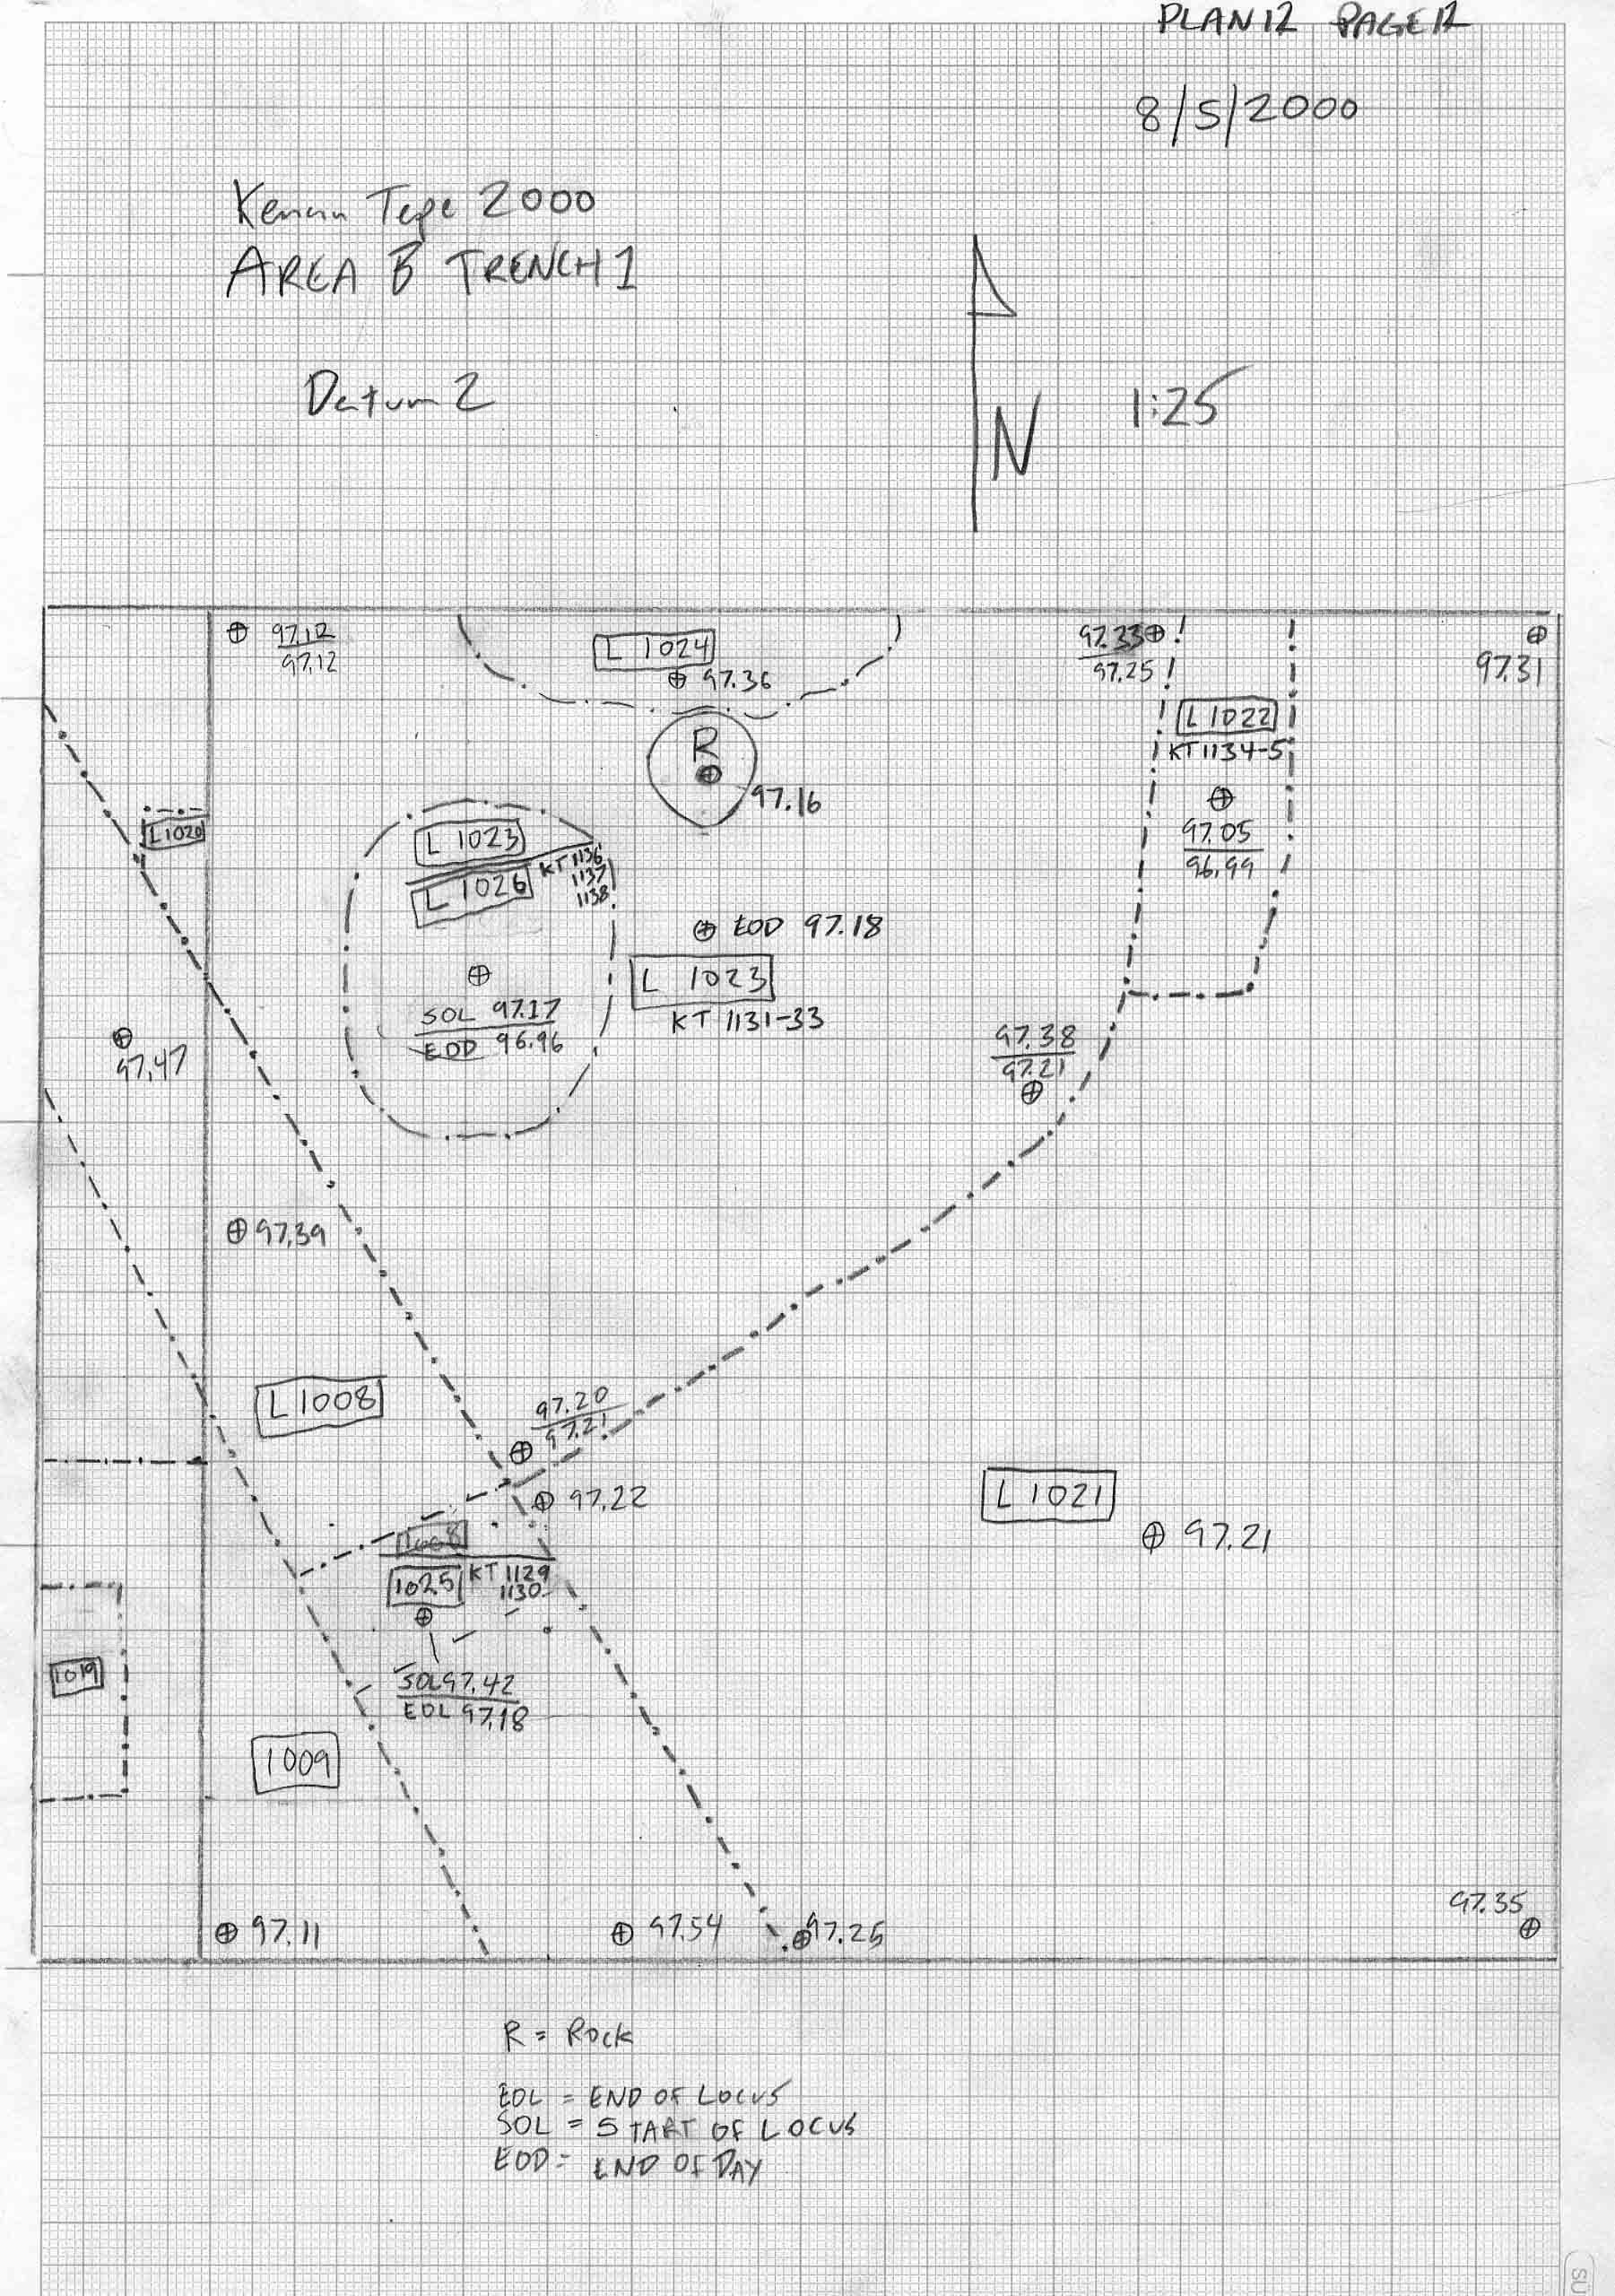 PLAN 12 PAGE 12
8/5/2000
Kenan Tepe 2000
AREA B TRENCH 1
Datum 2
N
1:25
97.12
97.12
L 1024
97.36
97.33
97.25
97.31
L 1022
KT 1134-5
R
97.16
97.05
96.99
L 1020
L 1023
L 1026
KT 1136
1137
1138
EOD 97.18
L 1023
KT 1131-33
SOL 97.17
EOD 96.96
97.47
97.38
97.21
97.39
L 1008
97.20
97.21
97.22
L 1021
97.21
1008
1025
KT 1129
1130
1019
SOL 97.42
EOL 97.18
1009
97.35
97.11
97.54
97.25
R = Rock
EOL = END OF LOCUS
SOL = START OF LOCUS
EOD = END OF DAY